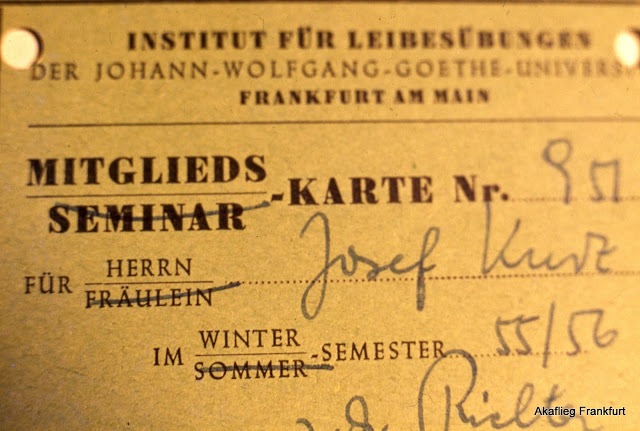 INSTITUT FÜR LEIBESÜBUNGEN
DER JOHANN-WOLFGANG-GOETHE-UNIVERS
FRANKFURT AM MAIN
MITGLIEDS
SEMINAR -KARTE Nr. 951
HERRN
FÜR FRÄULEIN Josef Kurz
WINTER
IM SOMMER -SEMESTER 55/56
Richter
Akaflieg Frankfurt